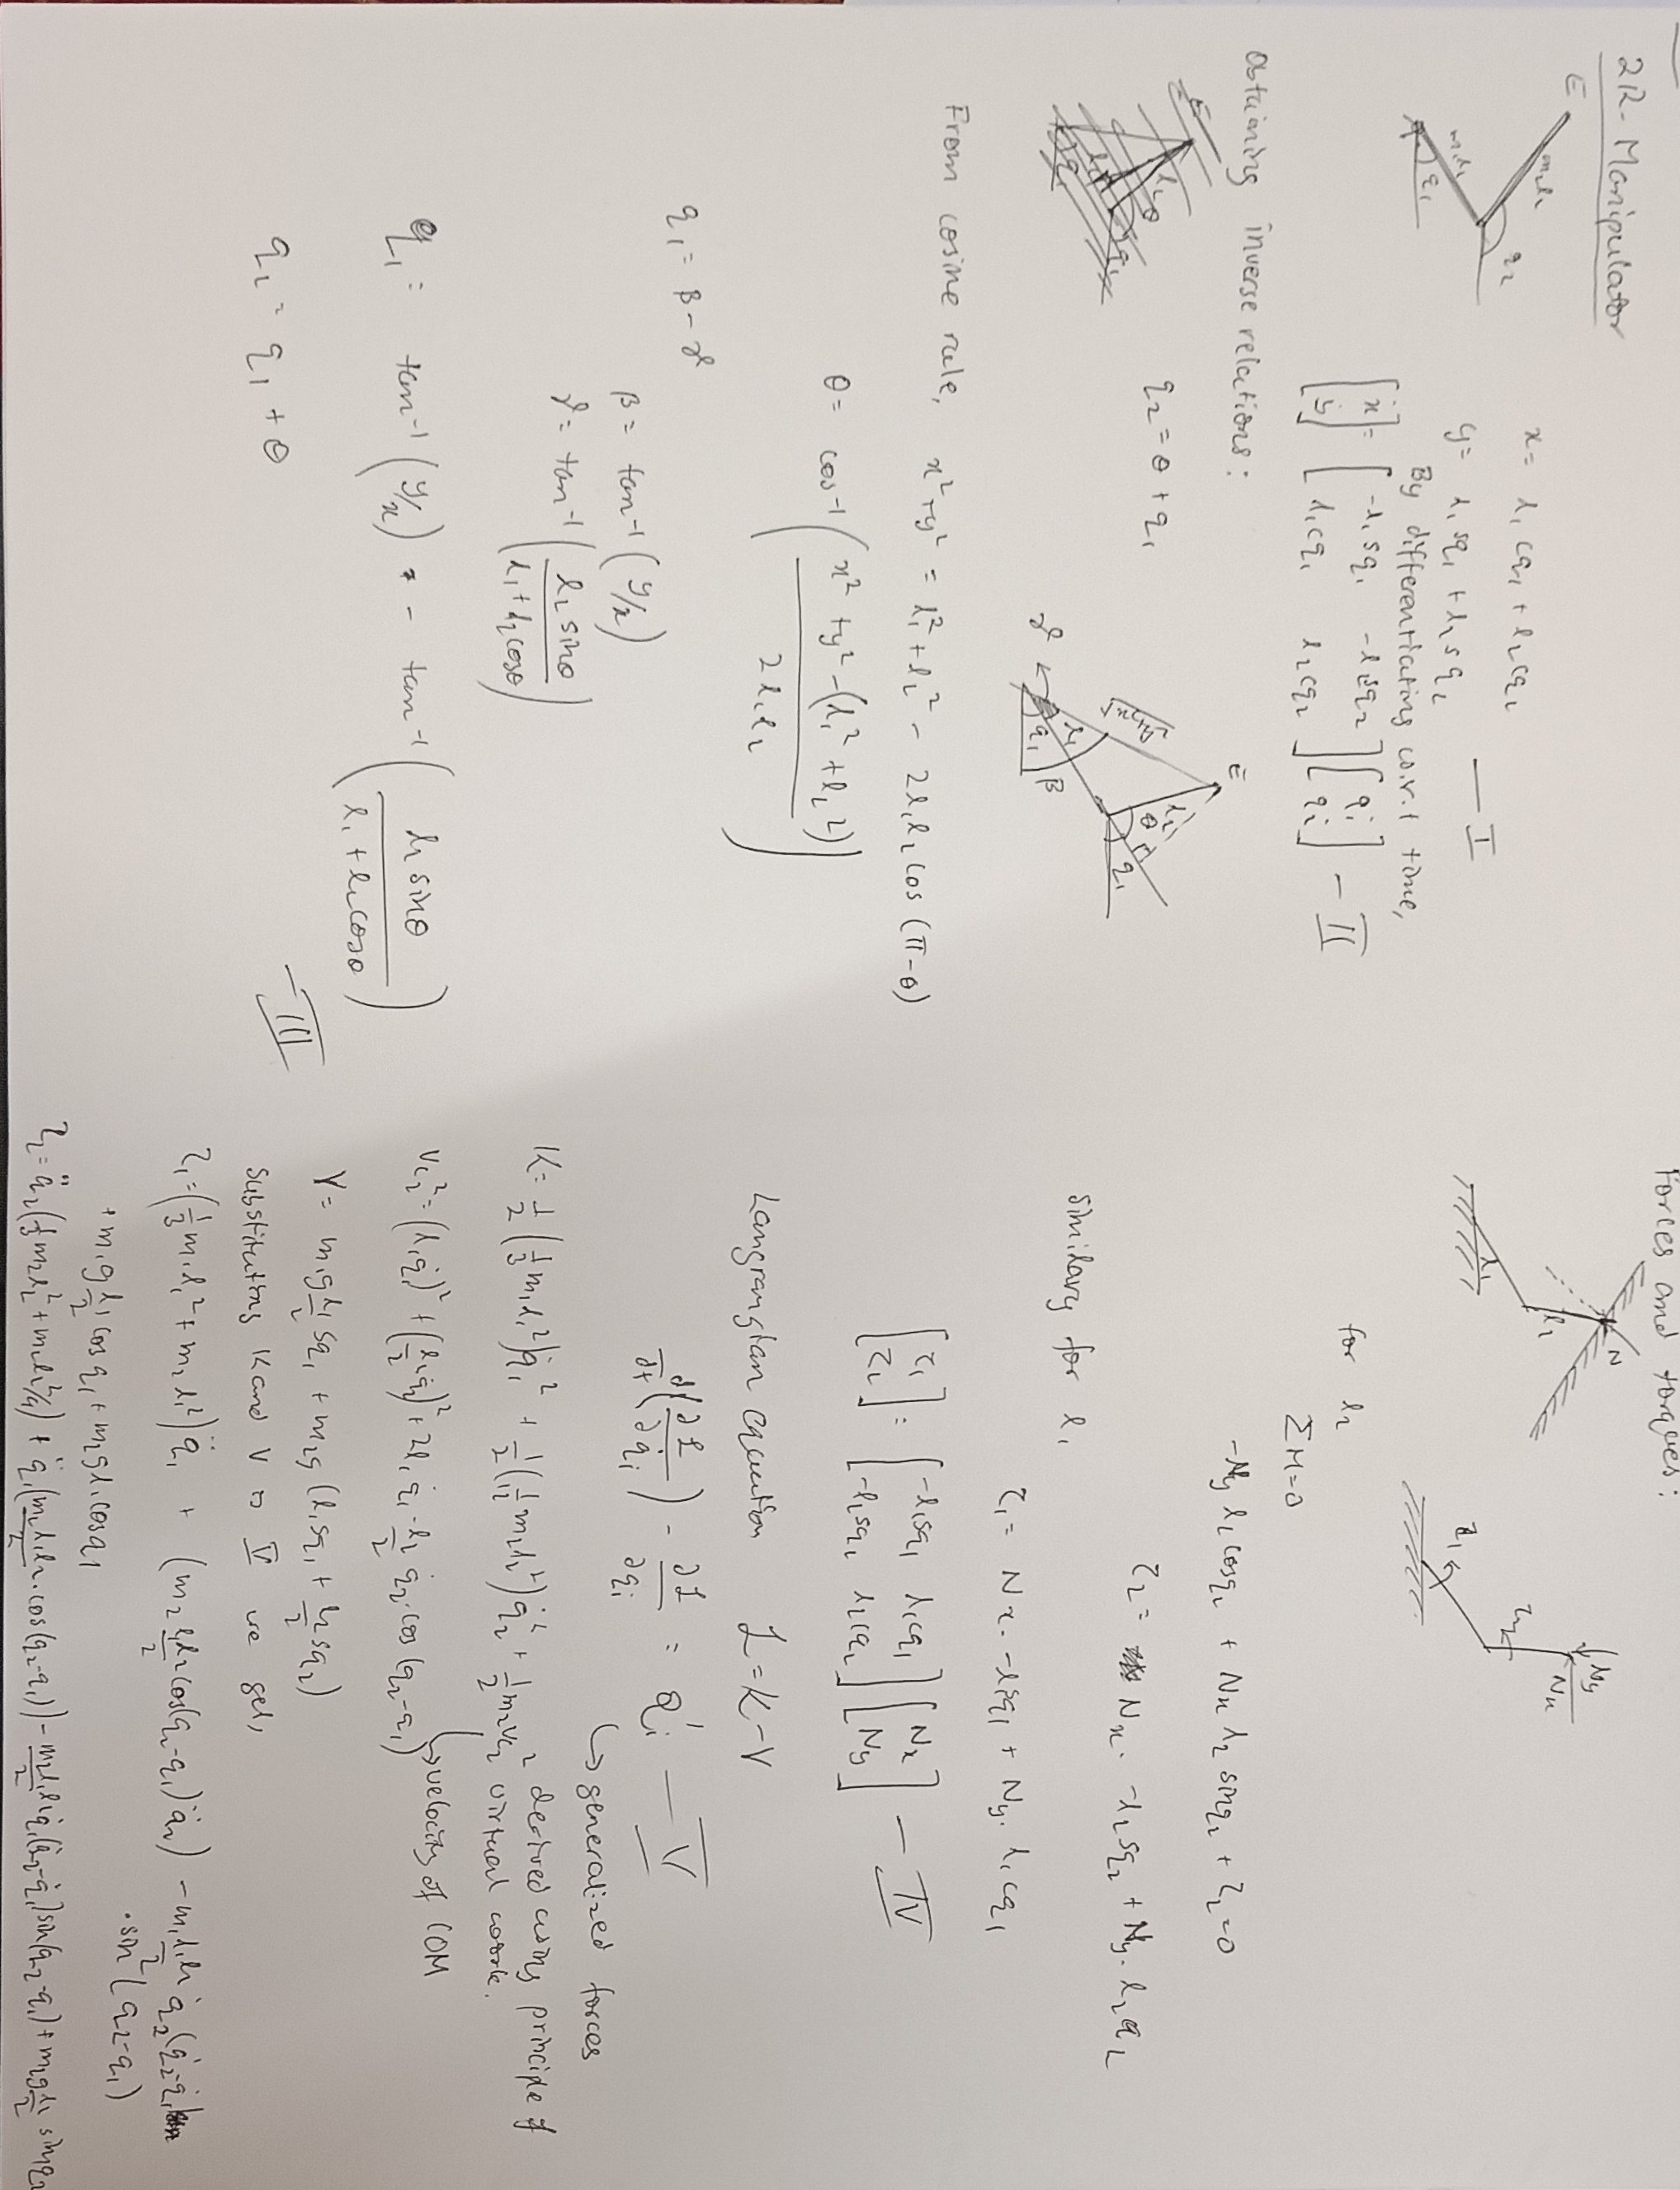 2R-Manipulator
E
m2l2
m1l1
q1
q2
x = l1cq1 + l2cq2
y = l1sq1 + l2sq2 — I
By differentiating w.r.t time,
[ẋ ẏ] = [-l1sq1 -l2sq2 l1cq1 l2cq2] [q̇1 q̇2] - II
Obtaining inverse relations:
q2 = θ + q1
E
l2
θ
q1
l1
β
γ
From cosine rule, x² + y² = l1² + l2² - 2l1l2cos(π-θ)
θ = cos⁻¹(x² + y² - (l1² + l2²) / 2l1l2)
q1 = β - γ
β = tan⁻¹(y/x)
γ = tan⁻¹(l2 sinθ / l1 + l2cosθ)
q1 = tan⁻¹(y/x) - tan⁻¹(l2 sinθ / l1 + l2cosθ)
q2 = q1 + θ
III
Forces and torques:
N
l2
l1
Ny
Nx
τ2
τ1
for l2
ΣM=0
-Ny l2 cosq2 + Nx l2 sinq2 + τ2 = 0
τ2 = Nx. -l2sq2 + Ny. l2cq2
similary for l1
τ1 = Nx. -l1sq1 + Ny. l1cq1
[τ1 τ2] = [-l1sq1 l1cq1 -l2sq2 l2cq2] [Nx Ny] — IV
Langrangian equation L = K - V
d/dt(∂L/∂q̇i) - ∂L/∂qi = Qi — V
↳ generalized forces
derived using principle of
virtual work.
K = 1/2(1/3 m1l1²)q̇1² + 1/2(1/12 m2l2²)q̇2² + 1/2 m2vc2²
vc2² = (l1q̇1)² + (l2/2 q̇2)² + 2l1q̇1.l2/2 q̇2.cos(q2-q1)
→velocity of COM
V = m1g l1/2 sq1 + m2g(l1sq1 + l2/2 sq2)
Substituting K and V in V we get,
τ1 = (1/3 m1l1² + m2l1²)q̈1 + (m2 l1l2/2 cos(q2-q1)q̈2) - m2l1l2/2 q̇2(q̇2-q̇1)
.sin(q2-q1)
+ m1g l1/2 cosq1 + m2gl1cosq1
τ2 = q̈2(1/3 m2l2² + m2l2²/4) + q̈1(m2l1l2/2.cos(q2-q1)) - m2l1l2/2 q̇1(q̇2-q̇1)sin(q2-q1) + m2gl2/2 sinq2